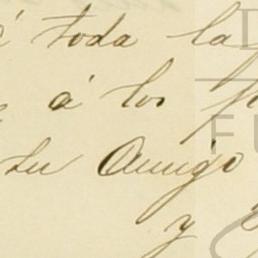 á toda la
á los
tu Amigo
y